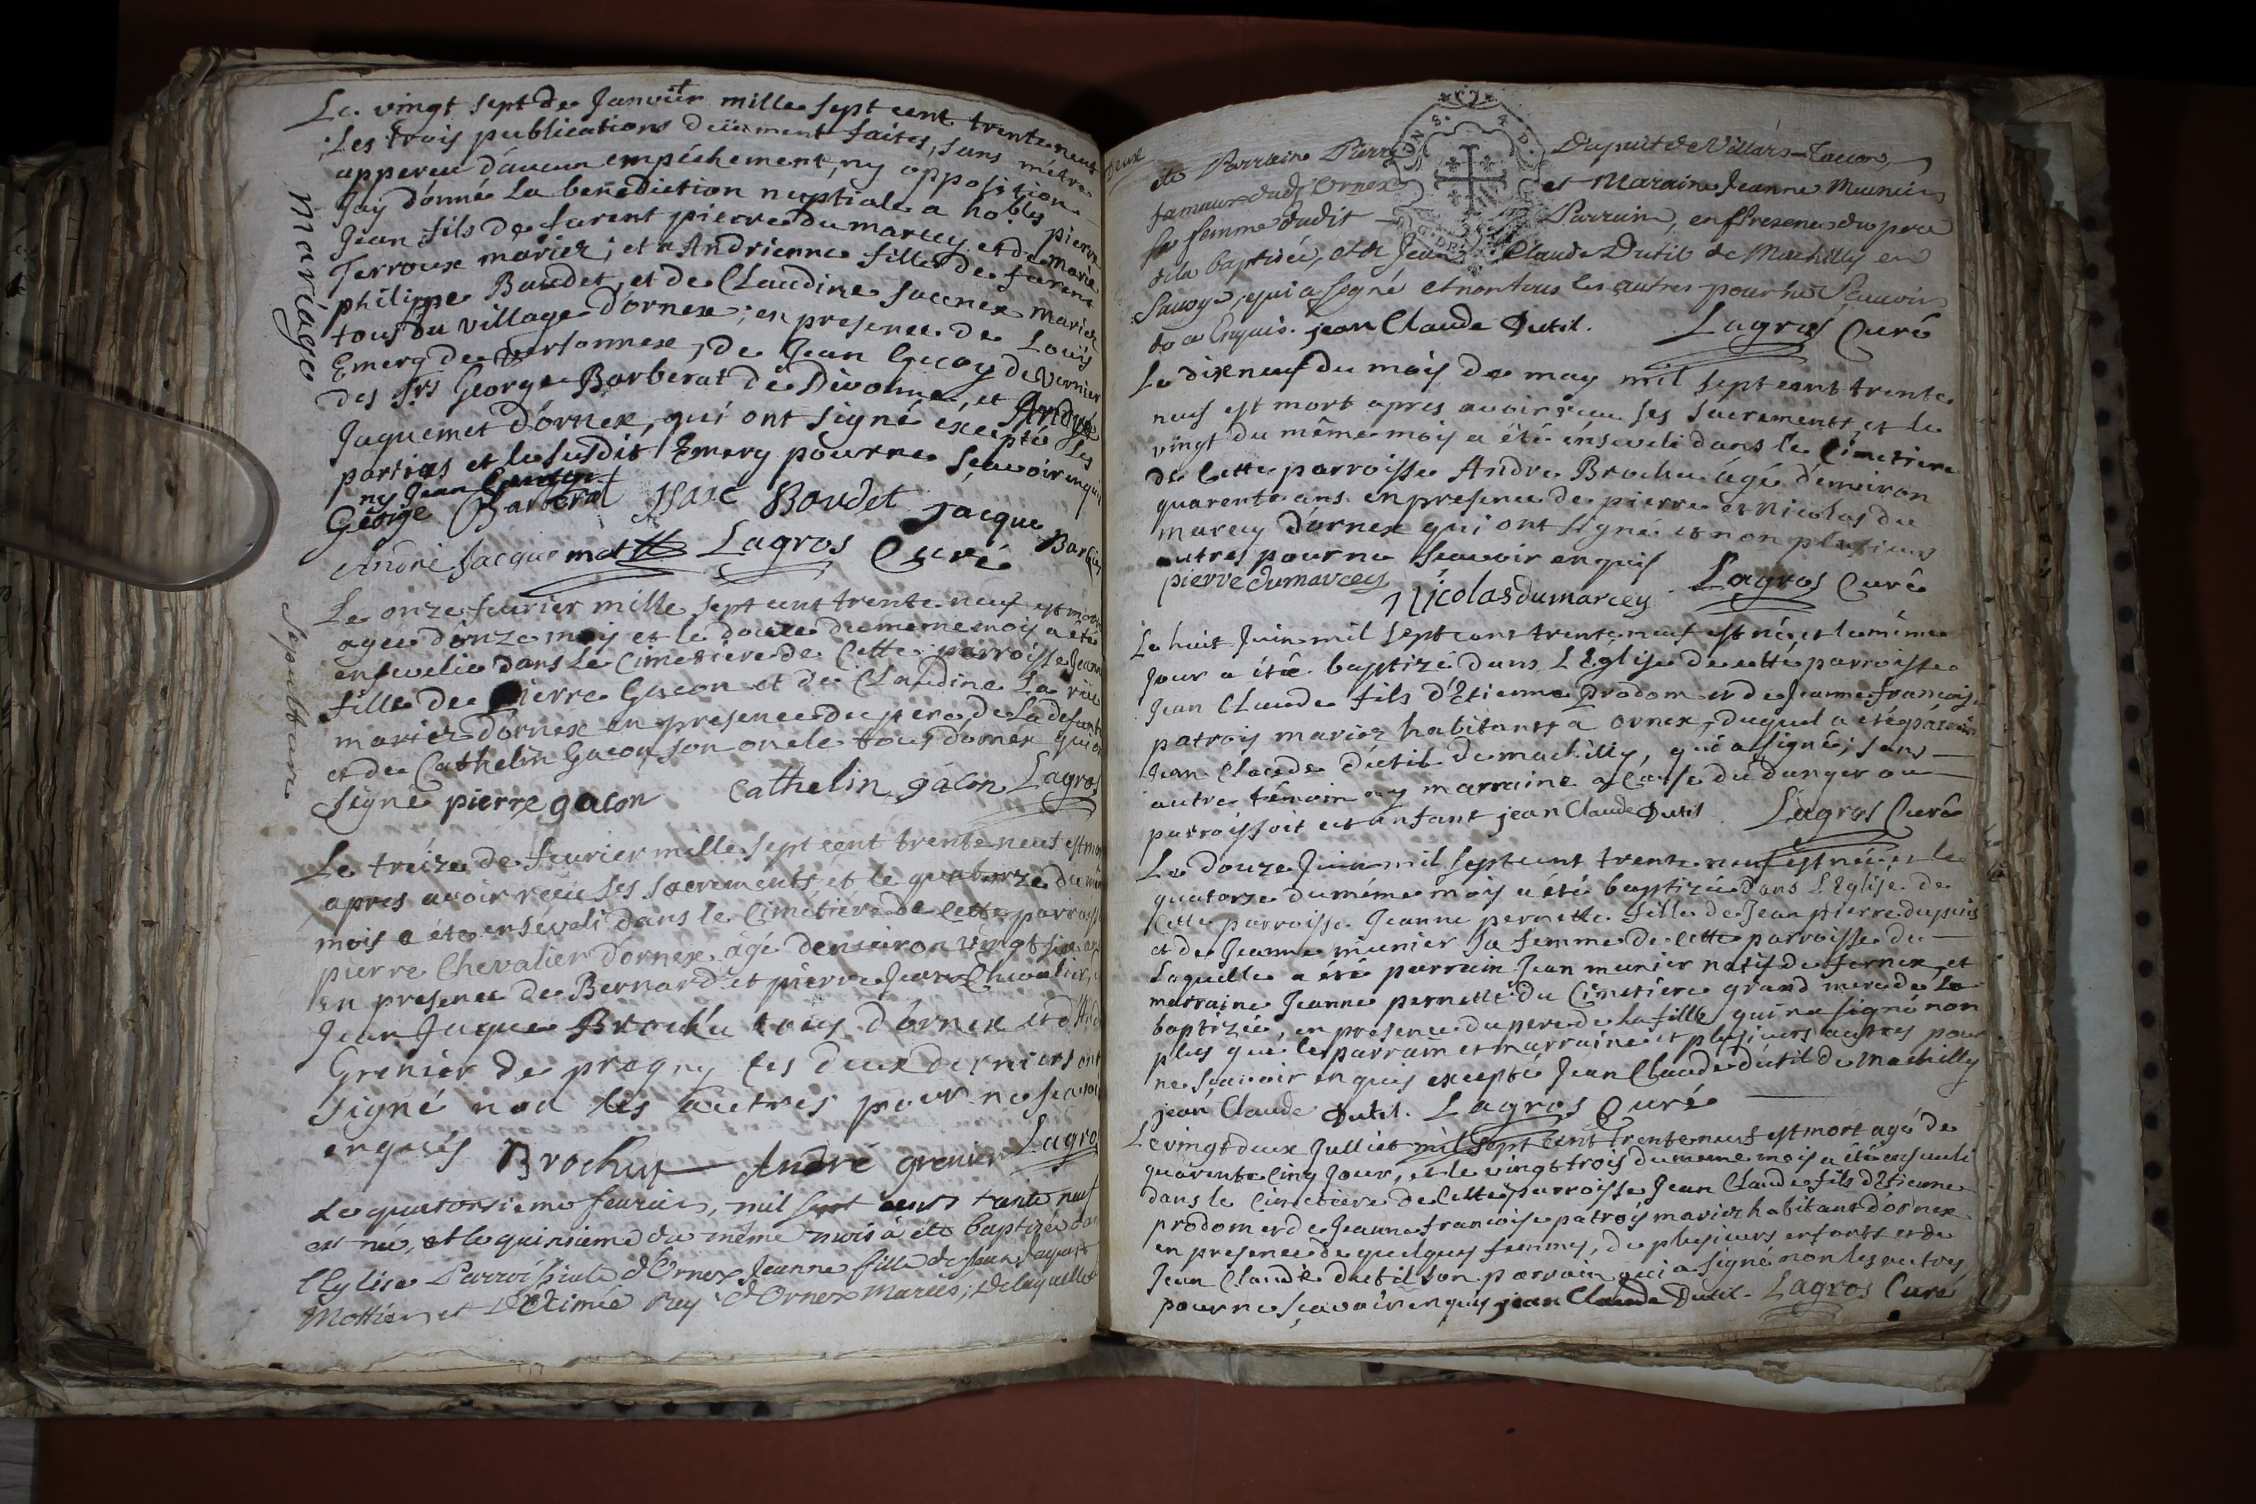 Le vingt sept de Janvier mille sept cent trente neuf
Les trois publications deüement faites, sans m'étre
apperçu d'aucun empéchement, ny opposition
Jaÿ donné La benediction nuptiale a noble pierre
Jean fils de furent pierre du marcey et de marie
Terroux mariez; et a Andrienne fille de furent
philippe Baudet, et de Claudine mariez
tous du village d'ornex; en presence de Loüis
Emery de de Jean de Vernier
des Srs George Barberat de Divonne, et André
Jaquemet d'ornex, qui ont signé éxcepté Les
parties et le susdit Emery pour ne sçavoir enquis
ny Jean
George Barberat Isaac Baudet Jacque
André Jacquemet Lagros Curé
mariage
Le onze fevrier mille sept cent trente neuf est morte
agée d'onze mois et le douze du meme mois a été
ensevelie dans Le Cimetiere de Cette parroisse Jeanne
fille de Pierre Gacon et de Claudine La
mariez d'ornex en presence du pere de La defunte
et de Cathelin Gacon son oncle tous d'ornex qui ont
signé pierre gacon Cathelin gacon Lagros
sepulture
Le treize de fevrier mille sept cent trente neuf est mort
apres avoir reçeu ses sacrements, et le quatorze du même
mois a été enséveli dans le Cimétiére de Cette parroisse
pierre Chevalier d'ornex, agé d'enveiron vingt six ans
en presence de Bernard et pierre Jean Chevalier,
Jean Jaque Brochu tous d'ornex et d'André
Grenier de pregny les deux derniers ont
signé non les autres pour ne scavoir
enquis Brochux André grenier Lagros
Le quatorsieme fevrier, mil sept cent trente neuf
est née, et le quinsieme du même mois à été baptizée dans
l'Eglise Parroissiale d'Ornex Jeanne fille de Jean Jaques
Mottier et D'Etimée Rey d'Ornex Mariés; de laquelle a
été Parrain Pierre Dupuit de Villars-Tacon,
dud Ornex et Maraine Jeanne Meunier
sa femme dudit Parrain, en presence du pere
de la baptisée, et de Jean Claude Dutil de Machilly en
Savoye, qui a signé et non tous les autres pour ne Scavoir
de ce Enquis. jean Claude Dutil. Lagros Curé
Le dixneuf du mois de may mil sept cent trente
neuf est mort apres avoir reçeu ses sacrements, et le
vingt du même mois a été enseveli dans le Cimetiere
de Cette parroisse André Brochu agé d'enveiron
quarente ans en presence de pierre et Nicolas du
marcey d'ornex qui ont signé et non plusieurs
autres pour ne sçavoir enquis
pierre dumarcey Nicolas dumarcey Lagros Curé
Le huit Juin mil sept cent trente neuf est né, et le même
Jour a été baptizé dans L'Eglise de cette parroisse
Jean Claude fils d'Etienne Prodom et de Jeanne françoise
patroy mariez habitants a ornex, duquel a été parrain
Jean Claude dutil de machilly, qui a signé; sans
autre témoin ny marraine a Cause du danger ou
parroissoit cet enfant jean Claude Dutil Lagros Curé
Le douze Juin mil sept cent trente neuf est née et le
quatorze du même mois a été baptizée dans L'Eglise de
Cette parroisse Jeanne pernette fille de Jean pierre dupuis
et de Jeanne munier sa femme de cette parroisse de
Laquelle a été parrain Jean munier natif de fernex et
marraine Jeanne pernette du Cimetiere grand mere de La
baptizée, en présence du pere de la fille qui n'a signé non
plus que le parrain et marraine et plusieurs autres pour
ne sçavoir enquis excepté Jean Claude dutil de machilly
jean Claude Dutil. Lagros Curé
Le vingt deux Julliet mil sept cent trente neuf est mort agé de
quarente cinq Jour, et le vingt trois du meme mois a été enseveli
dans le Cimetiere de Cette parroisse Jean Claude fils d'Etienne
prodom et de Jeanne françoise patroy mariez habitant d'ornex
en presence de quelques femmes, de plusieurs enfants et de
Jean Claude dutil son parrain qui a signé non les autres
pour ne sçavoir enquis jean Claude Dutil. Lagros Curé